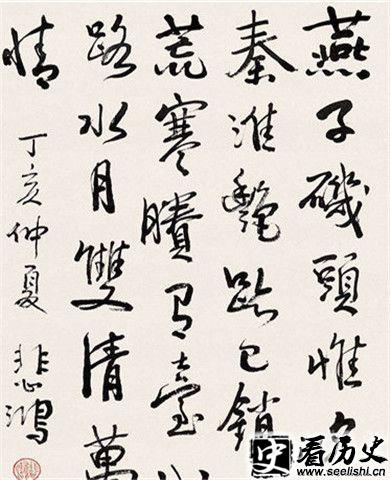 燕子磯頭惟
秦淮艷跡已銷
荒寒賸有臺
路水月雙清萬
情
丁亥仲夏 悲鴻
史 看历史
www.seelishi.cn